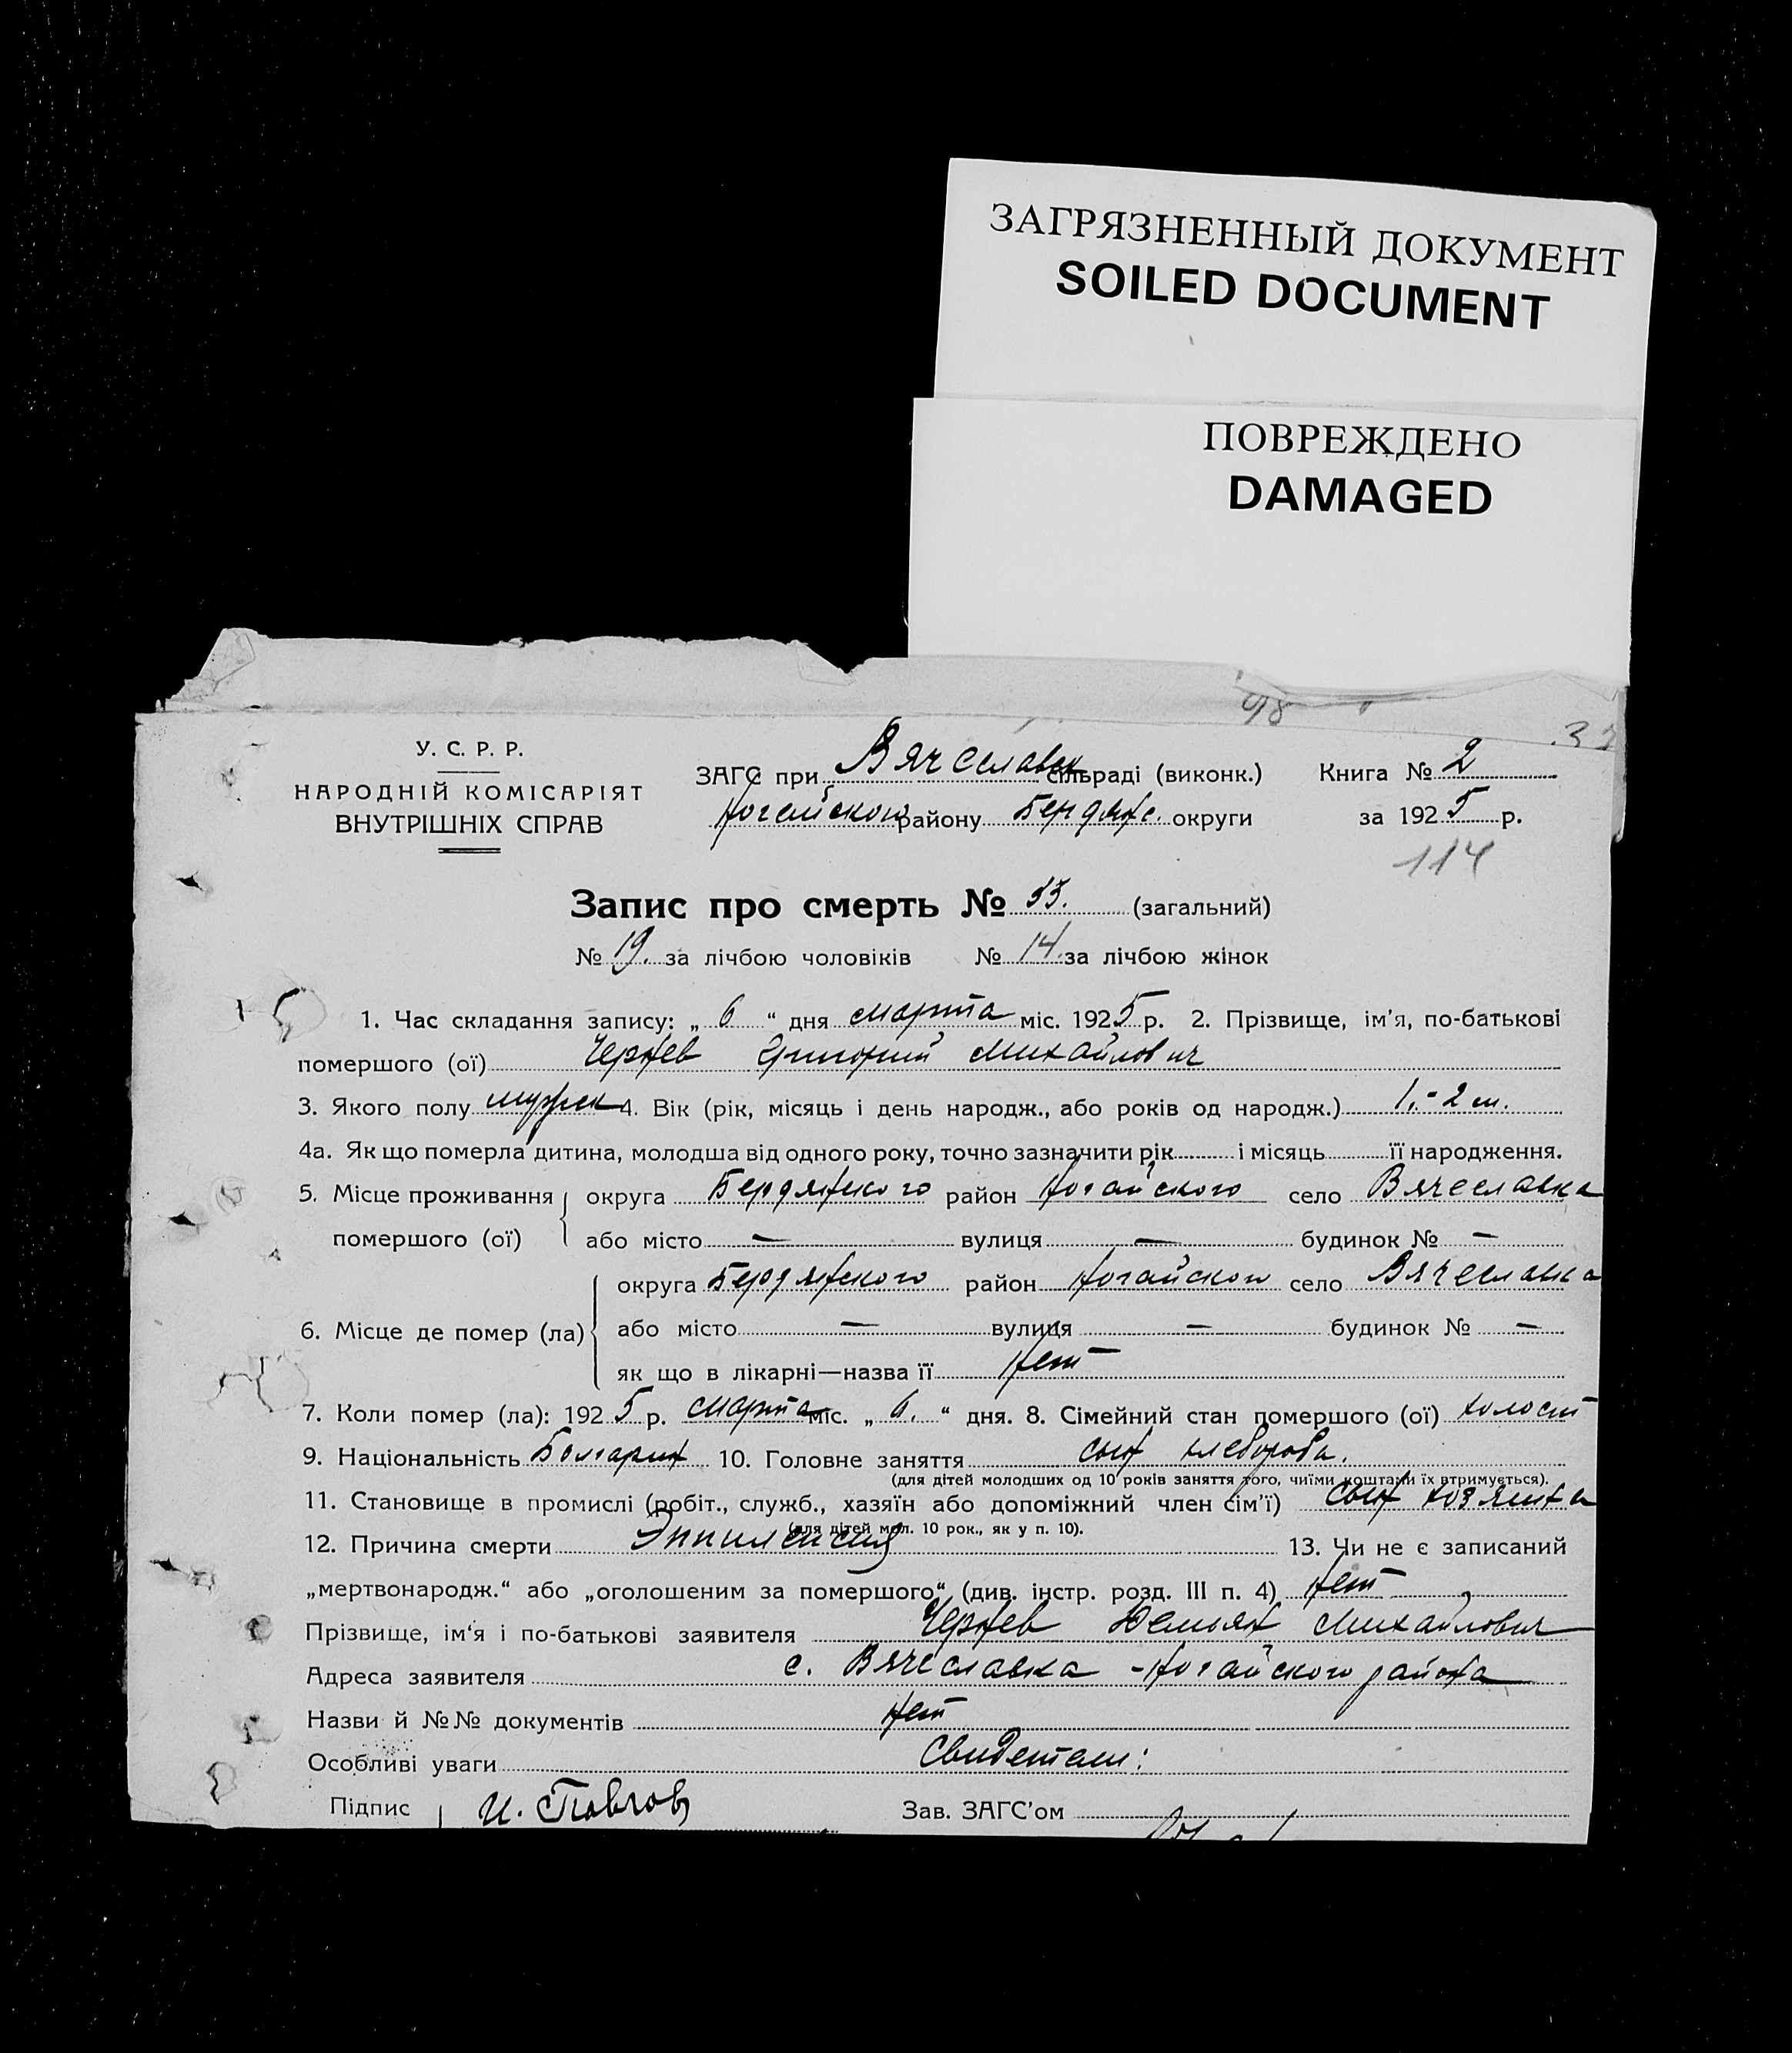 ЗАГРЯЗНЕННЫЙ ДОКУМЕНТ
SOILED DOCUMENT
ПОВРЕЖДЕНО
DAMAGED
98
У. С. Р. Р.
НАРОДНІЙ КОМІСАРІЯТ
ВНУТРІШНІХ СПРАВ
ЗАГС при Вячеславск сільраді (виконк.) Книга № 2
Ногайского району Бердянс. округи за 1925 р.
114
Запис про смерть № 33. (загальний)
№ 19. за лічбою чоловіків № 14. за лічбою жінок
1. Час складання запису: „ 6 “ дня марта міс. 1925 р. 2. Прізвище, ім’я, по-батькові
помершого (ої) Чернев Григорий Михайлович
3. Якого полу мужск 4. Вік (рік, місяць і день народж., або років од народж.) 1.-2 м.
4а. Як що померла дитина, молодша від одного року, точно зазначити рік і місяць її народження.
5. Місце проживання округа Бердянского район Ногайского село Вячеславка
помершого (ої) або місто — вулиця — будинок № —
округа Бердянского район Ногайского село Вячеславка
6. Місце де помер (ла) або місто — вулиця — будинок № —
як що в лікарні—назва її нет
7. Коли помер (ла): 1925 р. марта міс. „ 6. “ дня. 8. Сімейний стан помершого (ої) холост
9. Національність Болгарин 10. Головне заняття сын хлебороба.
(для дітей молодших од 10 років заняття того, чиїми коштами їх втримується).
11. Становище в промислі (робіт., служб., хазяїн або допоміжний член сім’ї) сын хозяина
(для дітей мол. 10 рок., як у п. 10).
12. Причина смерти Эпилепсия 13. Чи не є записаний
„мертвонародж.“ або „оголошеним за помершого“ (див. інстр. розд. III п. 4) нет
Прізвище, ім‘я і по-батькові заявителя Чернев Демьян Михайлович
Адреса заявителя с. Вячеславка - Ногайского района
Назви й №№ документів нет
Особливі уваги Свидетели:
Підпис И. Павлов Зав. ЗАГС’ом